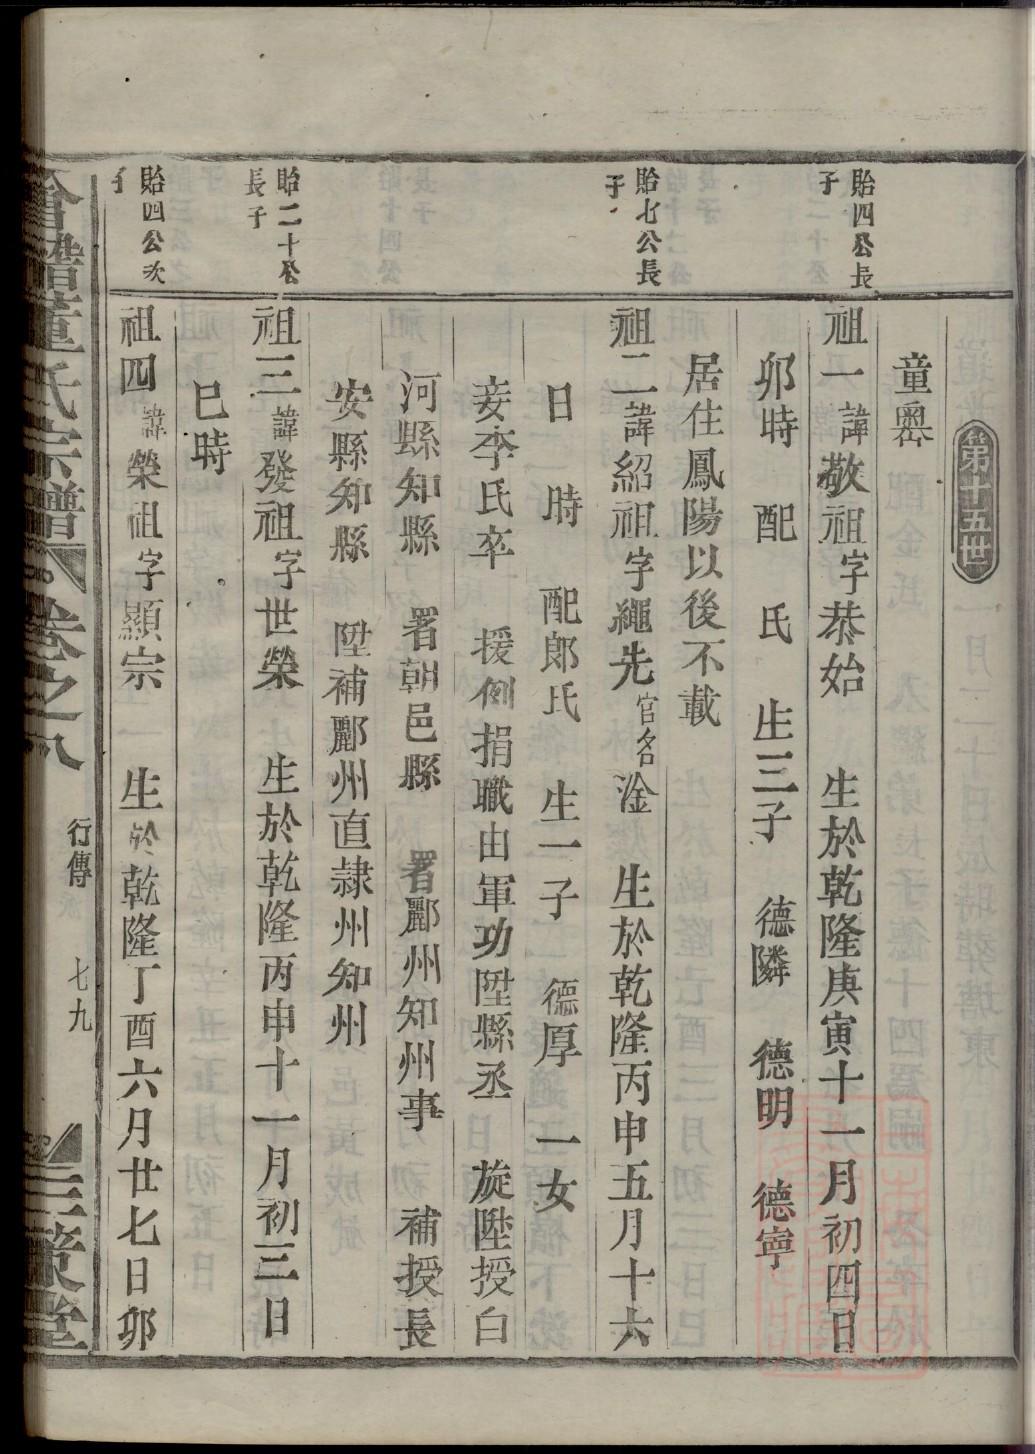 第十五世
童嶴
貽四公長
子
祖一諱敬祖字恭始　生於乾隆庚寅十一月初四日
卯時　配　氏　生三子　德隣　德明　德寧
居住鳳陽以後不載
貽七公長
子
祖二諱紹祖字繩先官名淦　生於乾隆丙申五月十六
日　時　配郎氏　生一子　德厚　一女
妾李氏卒　援例捐職由軍功陞縣丞　旋陞授白
河縣知縣　署朝邑縣　署鄜州知州事　補授長
安縣知縣　陞補鄜州直隸州知州
貽二十公
長子
祖三諱發祖字世榮　生於乾隆丙申十一月初三日
巳時
貽四公次
子
祖四諱榮祖字顯宗　生於乾隆丁酉六月廿七日卯
合譜童氏宗譜　卷之八　行傳　七九　三策堂